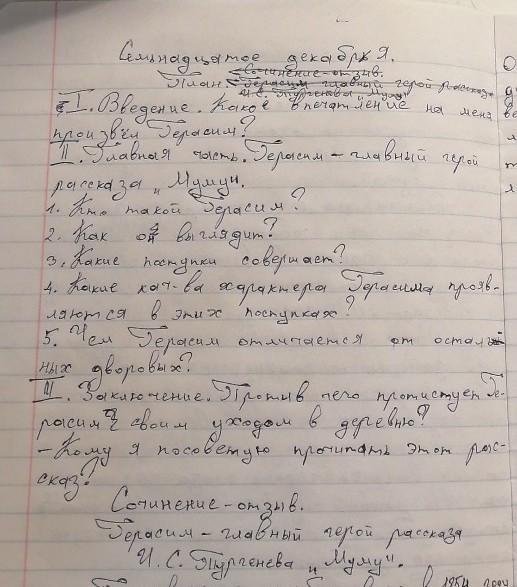 Семьнадцатое декабря.
План. Сочинение-отзыв.
Герасим главный герой рассказа
И.С. Тургенева "Муму"
I. Введение. Какое впечатление на меня
произвёл Герасим?
II. Главная часть. Герасим – главный герой
рассказа „Муму".
1. Кто такой Герасим?
2. Как он выглядит?
3. Какие поступки совершает?
4. Какие кач-ва характера Герасима прояв-
ляются в этих поступках?
5. Чем Герасим отличается от осталь-
ных дворовых?
III. Заключение. Против чего протистует Ге-
расим своим уходом в деревню?
– Кому я посоветую прочитать этот рас-
сказ?
Сочинение-отзыв.
Герасим – главный герой рассказа
И.С. Тургенева „Муму".